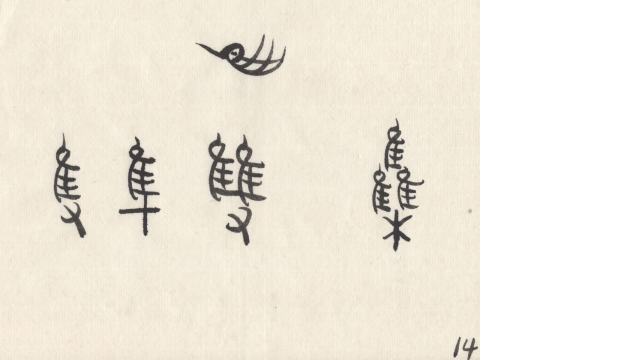 隻 隼 雙 雧
14